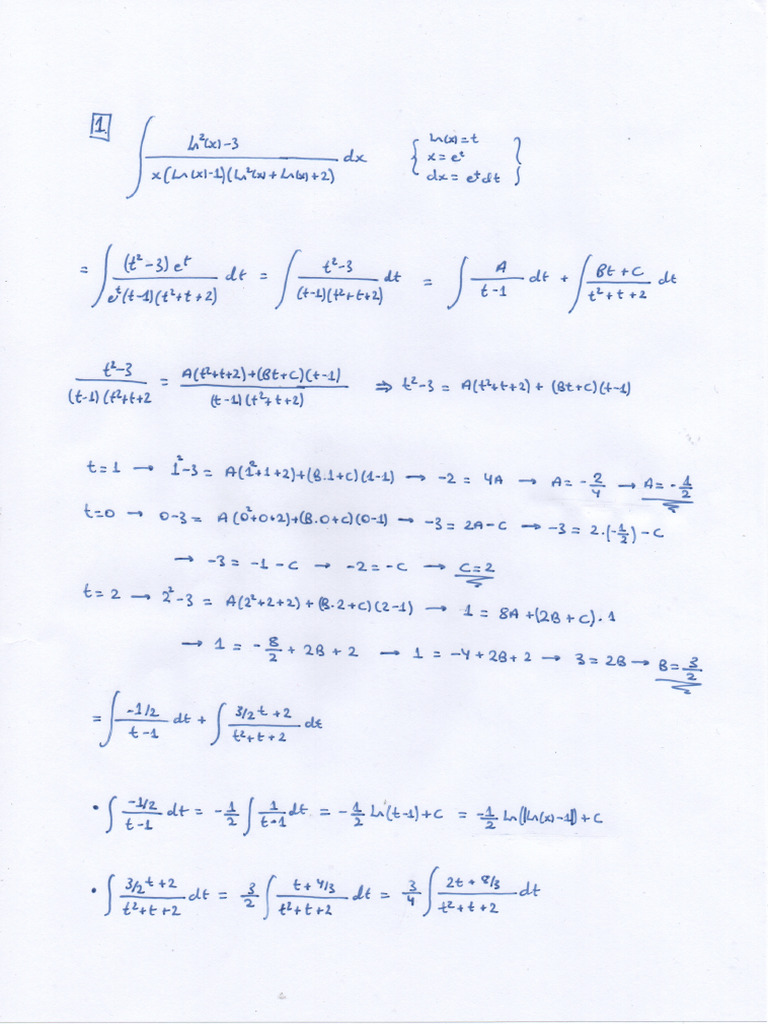 1. ∫ (ln²(x)-3)/(x(ln(x)-1)(ln²(x)+ln(x)+2)) dx { ln(x)=t
x=eᵗ
dx=eᵗdt }
= ∫ ((t²-3)eᵗ)/(eᵗ(t-1)(t²+t+2)) dt = ∫ (t²-3)/((t-1)(t²+t+2)) dt = ∫ A/(t-1) dt + ∫ (Bt+C)/(t²+t+2) dt
(t²-3)/((t-1)(t²+t+2 = (A(t²+t+2)+(Bt+C)(t-1))/((t-1)(t²+t+2)) ⇒ t²-3 = A(t²+t+2) + (Bt+C)(t-1)
t=1 → 1²-3 = A(1²+1+2)+(B.1+C)(1-1) → -2 = 4A → A=-2/4 → A=-1/2
t=0 → 0-3 = A(0²+0+2)+(B.0+C)(0-1) → -3=2A-C → -3=2.(-1/2)-C
→ -3=-1-C → -2=-C → C=2
t=2 → 2²-3 = A(2²+2+2)+(B.2+C)(2-1) → 1=8A+(2B+C).1
→ 1=-8/2+2B+2 → 1=-4+2B+2 → 3=2B → B=3/2
= ∫ (-1/2)/(t-1) dt + ∫ (3/2t+2)/(t²+t+2) dt
• ∫ (-1/2)/(t-1) dt = -1/2 ∫ 1/(t-1) dt = -1/2 ln(t-1)+C = -1/2 ln(|ln(x)-1|)+C
• ∫ (3/2t+2)/(t²+t+2) dt = 3/2 ∫ (t+4/3)/(t²+t+2) dt = 3/4 ∫ (2t+8/3)/(t²+t+2) dt